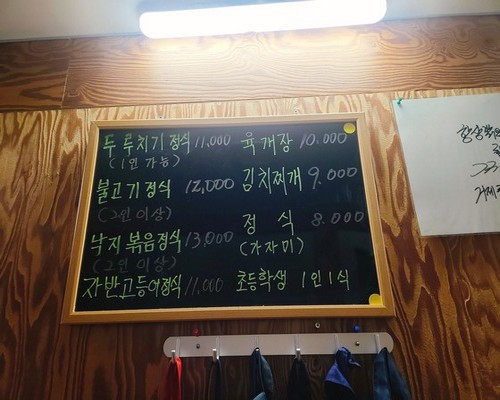 두루치기정식 11,000
(1인 가능)
불고기정식 12,000
(2인 이상)
낙지볶음정식 13,000
(2인 이상)
자반고등어정식 11,000
육개장 10.000
김치찌개 9.000
정식 8.000
(가자미)
초등학생 1인1식